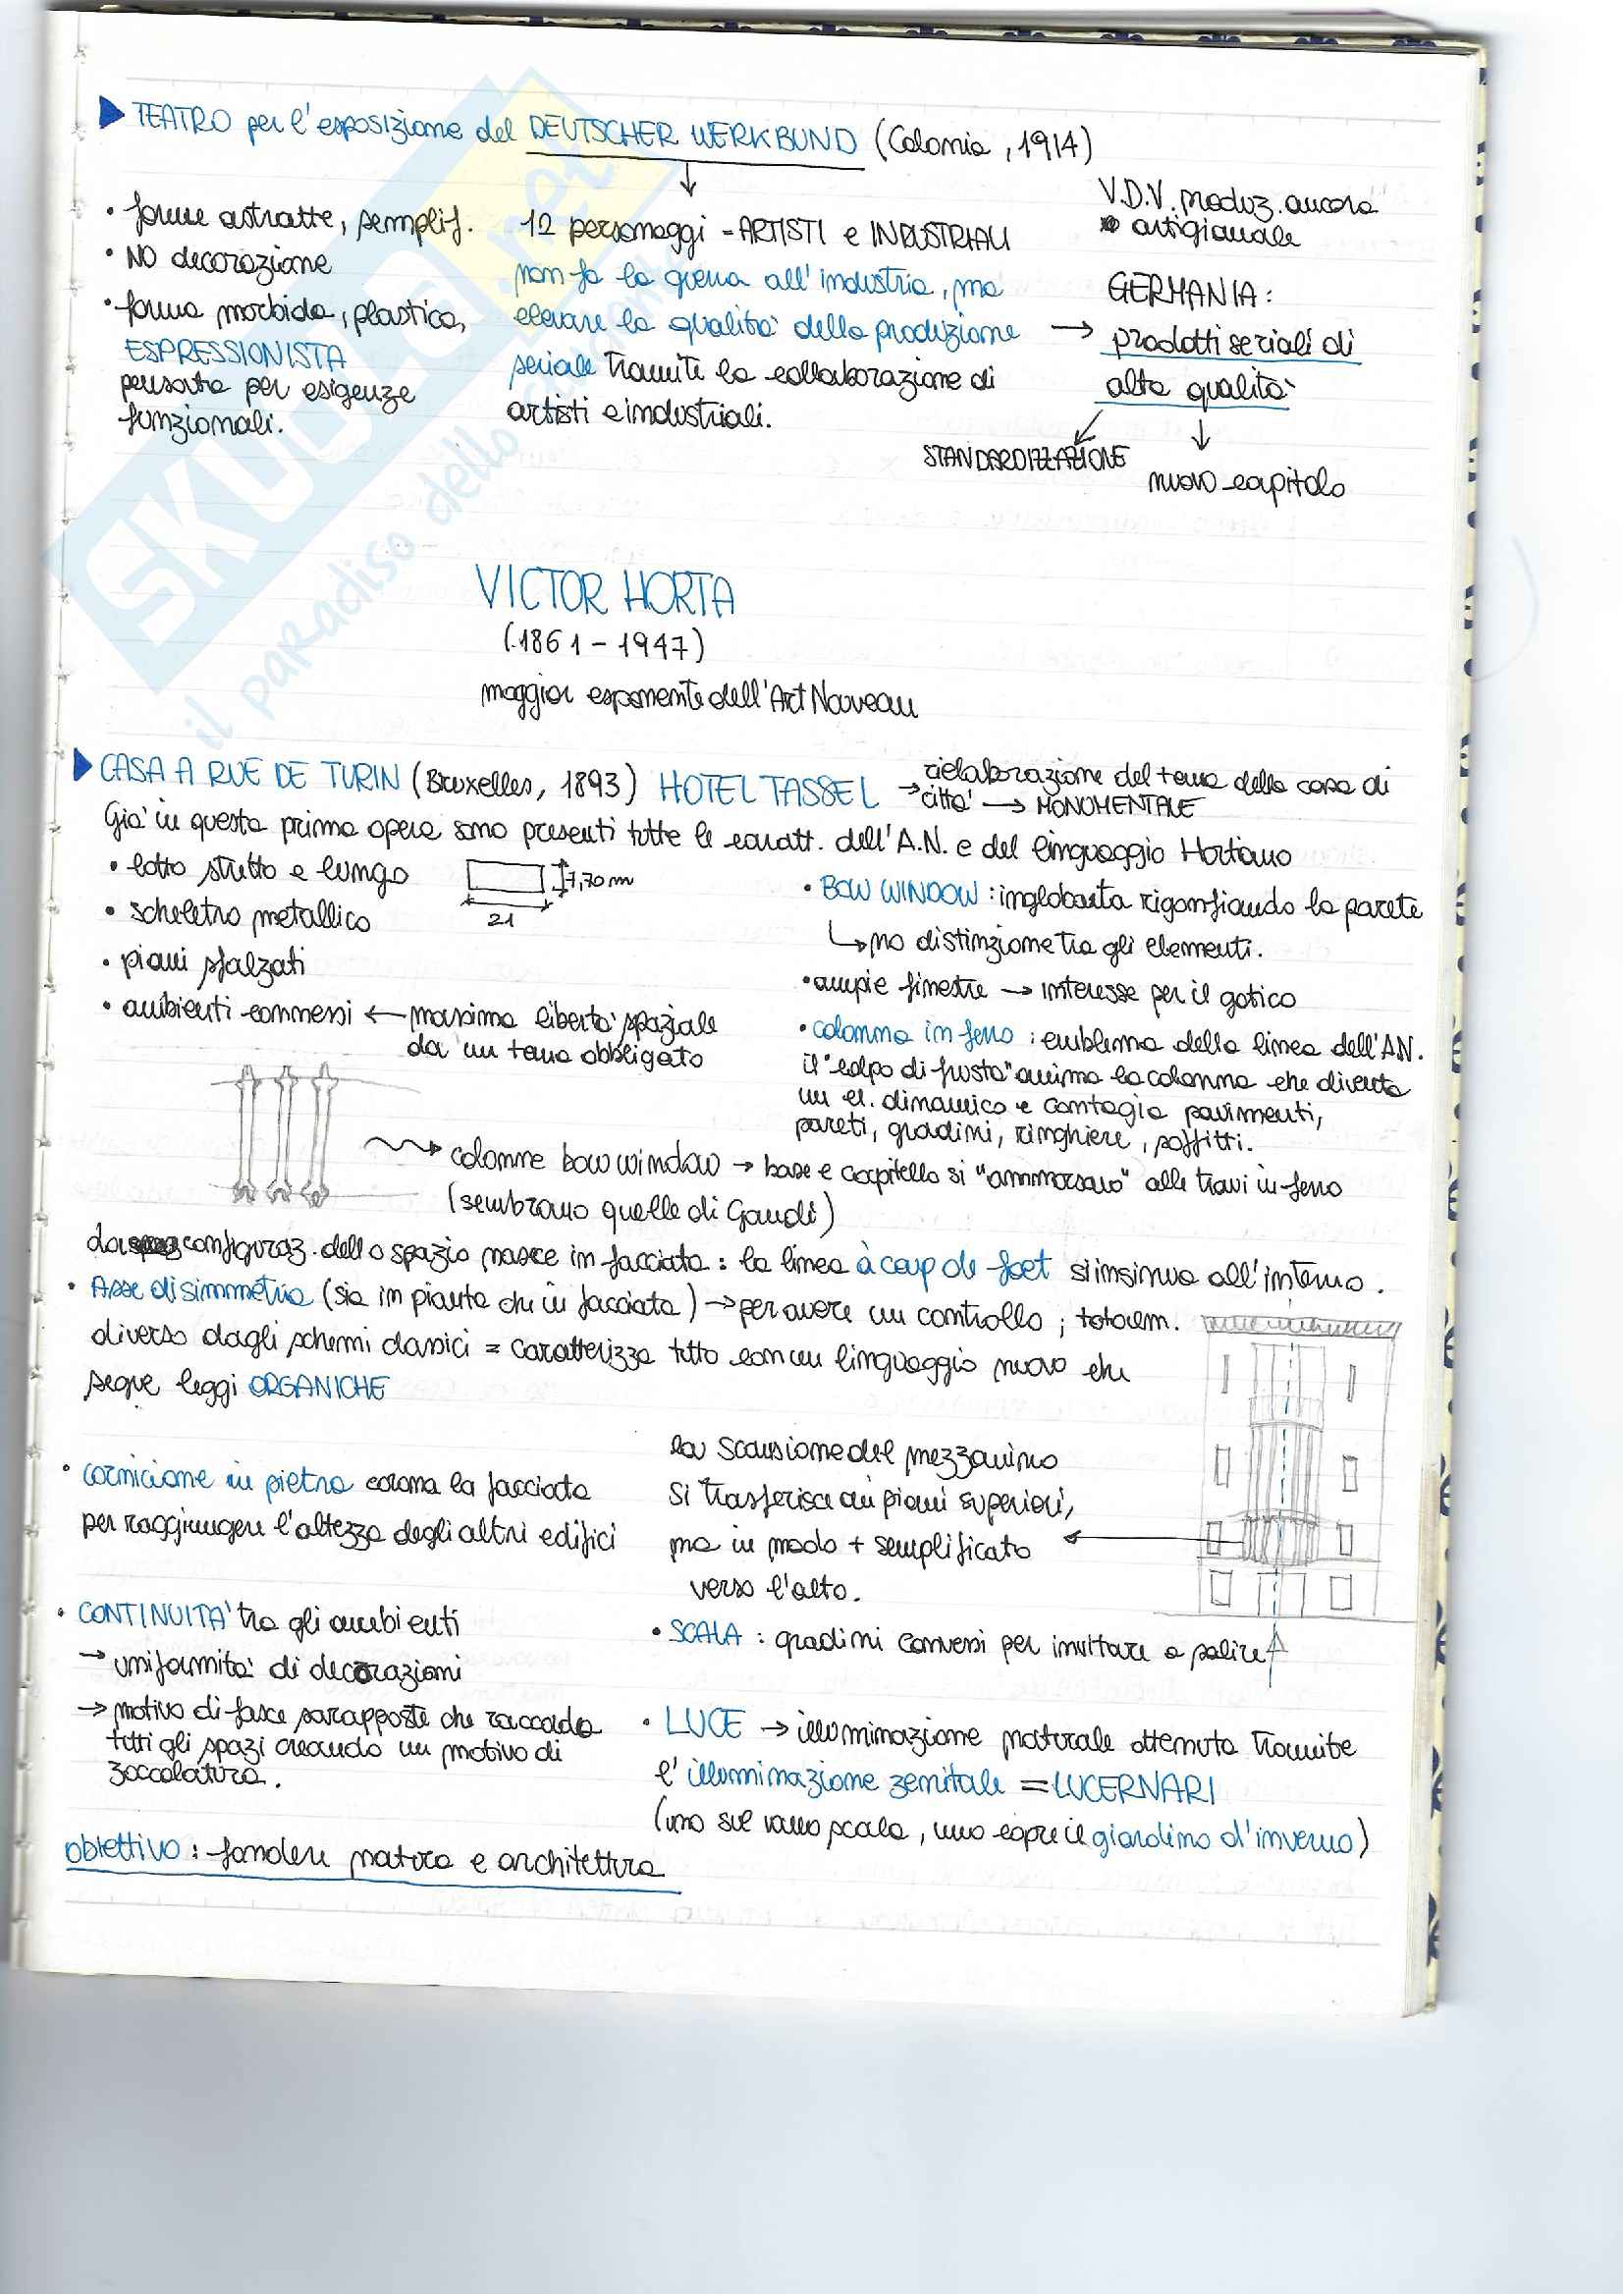 TEATRO per l'esposizione del DEUTSCHER WERKBUND (Colonia, 1914)
• forme astratte, semplif.
• NO decorazione
• forma morbida, plastica,
ESPRESSIONISTA
pensata per esigenze
funzionali.
12 personaggi - ARTISTI e INDUSTRIALI
non fa la guerra all'industria, ma
elevare la qualità della produzione
seriale tramite la collaborazione di
artisti e industriali.
V.D.V. produz. ancora
artigianale
GERMANIA:
→ prodotti seriali di
alta qualità
STANDARDIZZAZIONE
nuovo capitolo
VICTOR HORTA
(1861 - 1947)
maggior esponente dell'Art Nouveau
CASA A RUE DE TURIN (Bruxelles, 1893) HOTEL TASSEL → rielaborazione del tema della casa di
città → MONUMENTALE
Già in questa prima opera sono presenti tutte le caratt. dell'A.N. e del linguaggio Hortiano
• lotto stretto e lungo
7,70 m
21
• scheletro metallico
• piani sfalzati
• ambienti connessi ← massima libertà spaziale
da un tema obbligato
• BOW WINDOW : inglobata rigonfiando la parete
↳ no distinzione tra gli elementi.
• ampie finestre → interesse per il gotico
• colonna in ferro : emblema della linea dell'AN.
il "colpo di frusta" anima la colonna che diventa
un el. dinamico e contagia pavimenti,
pareti, gradini, ringhiere, soffitti.
colonne bow window → base e capitello si "ammorsano" alle travi in ferro
(sembrano quelle di Gaudì)
La configuraz. dello spazio nasce in facciata : la linea à coup de foet si insinua all'interno.
• Asse di simmetria (sia in pianta che in facciata) → per avere un controllo ; totalem.
diverso dagli schemi classici = caratterizza tutto con un linguaggio nuovo che
segue leggi ORGANICHE
• cornicione in pietra corona la facciata
per raggiungere l'altezza degli altri edifici
la scansione del mezzanino
si trasferisce ai piani superiori,
ma in modo + semplificato
verso l'alto.
• CONTINUITA' tra gli ambienti
→ uniformità di decorazioni
→ motivo di fasce sovrapposte che raccorda
tutti gli spazi creando un motivo di
zoccolatura.
• SCALA : gradini convessi per invitare a salire
• LUCE → illuminazione naturale ottenuta tramite
l'illuminazione zenitale = LUCERNARI
(uno sul vano scala, uno copre il giardino d'inverno)
obiettivo : fondere natura e architettura
SKUOLA.net
il paradiso dello